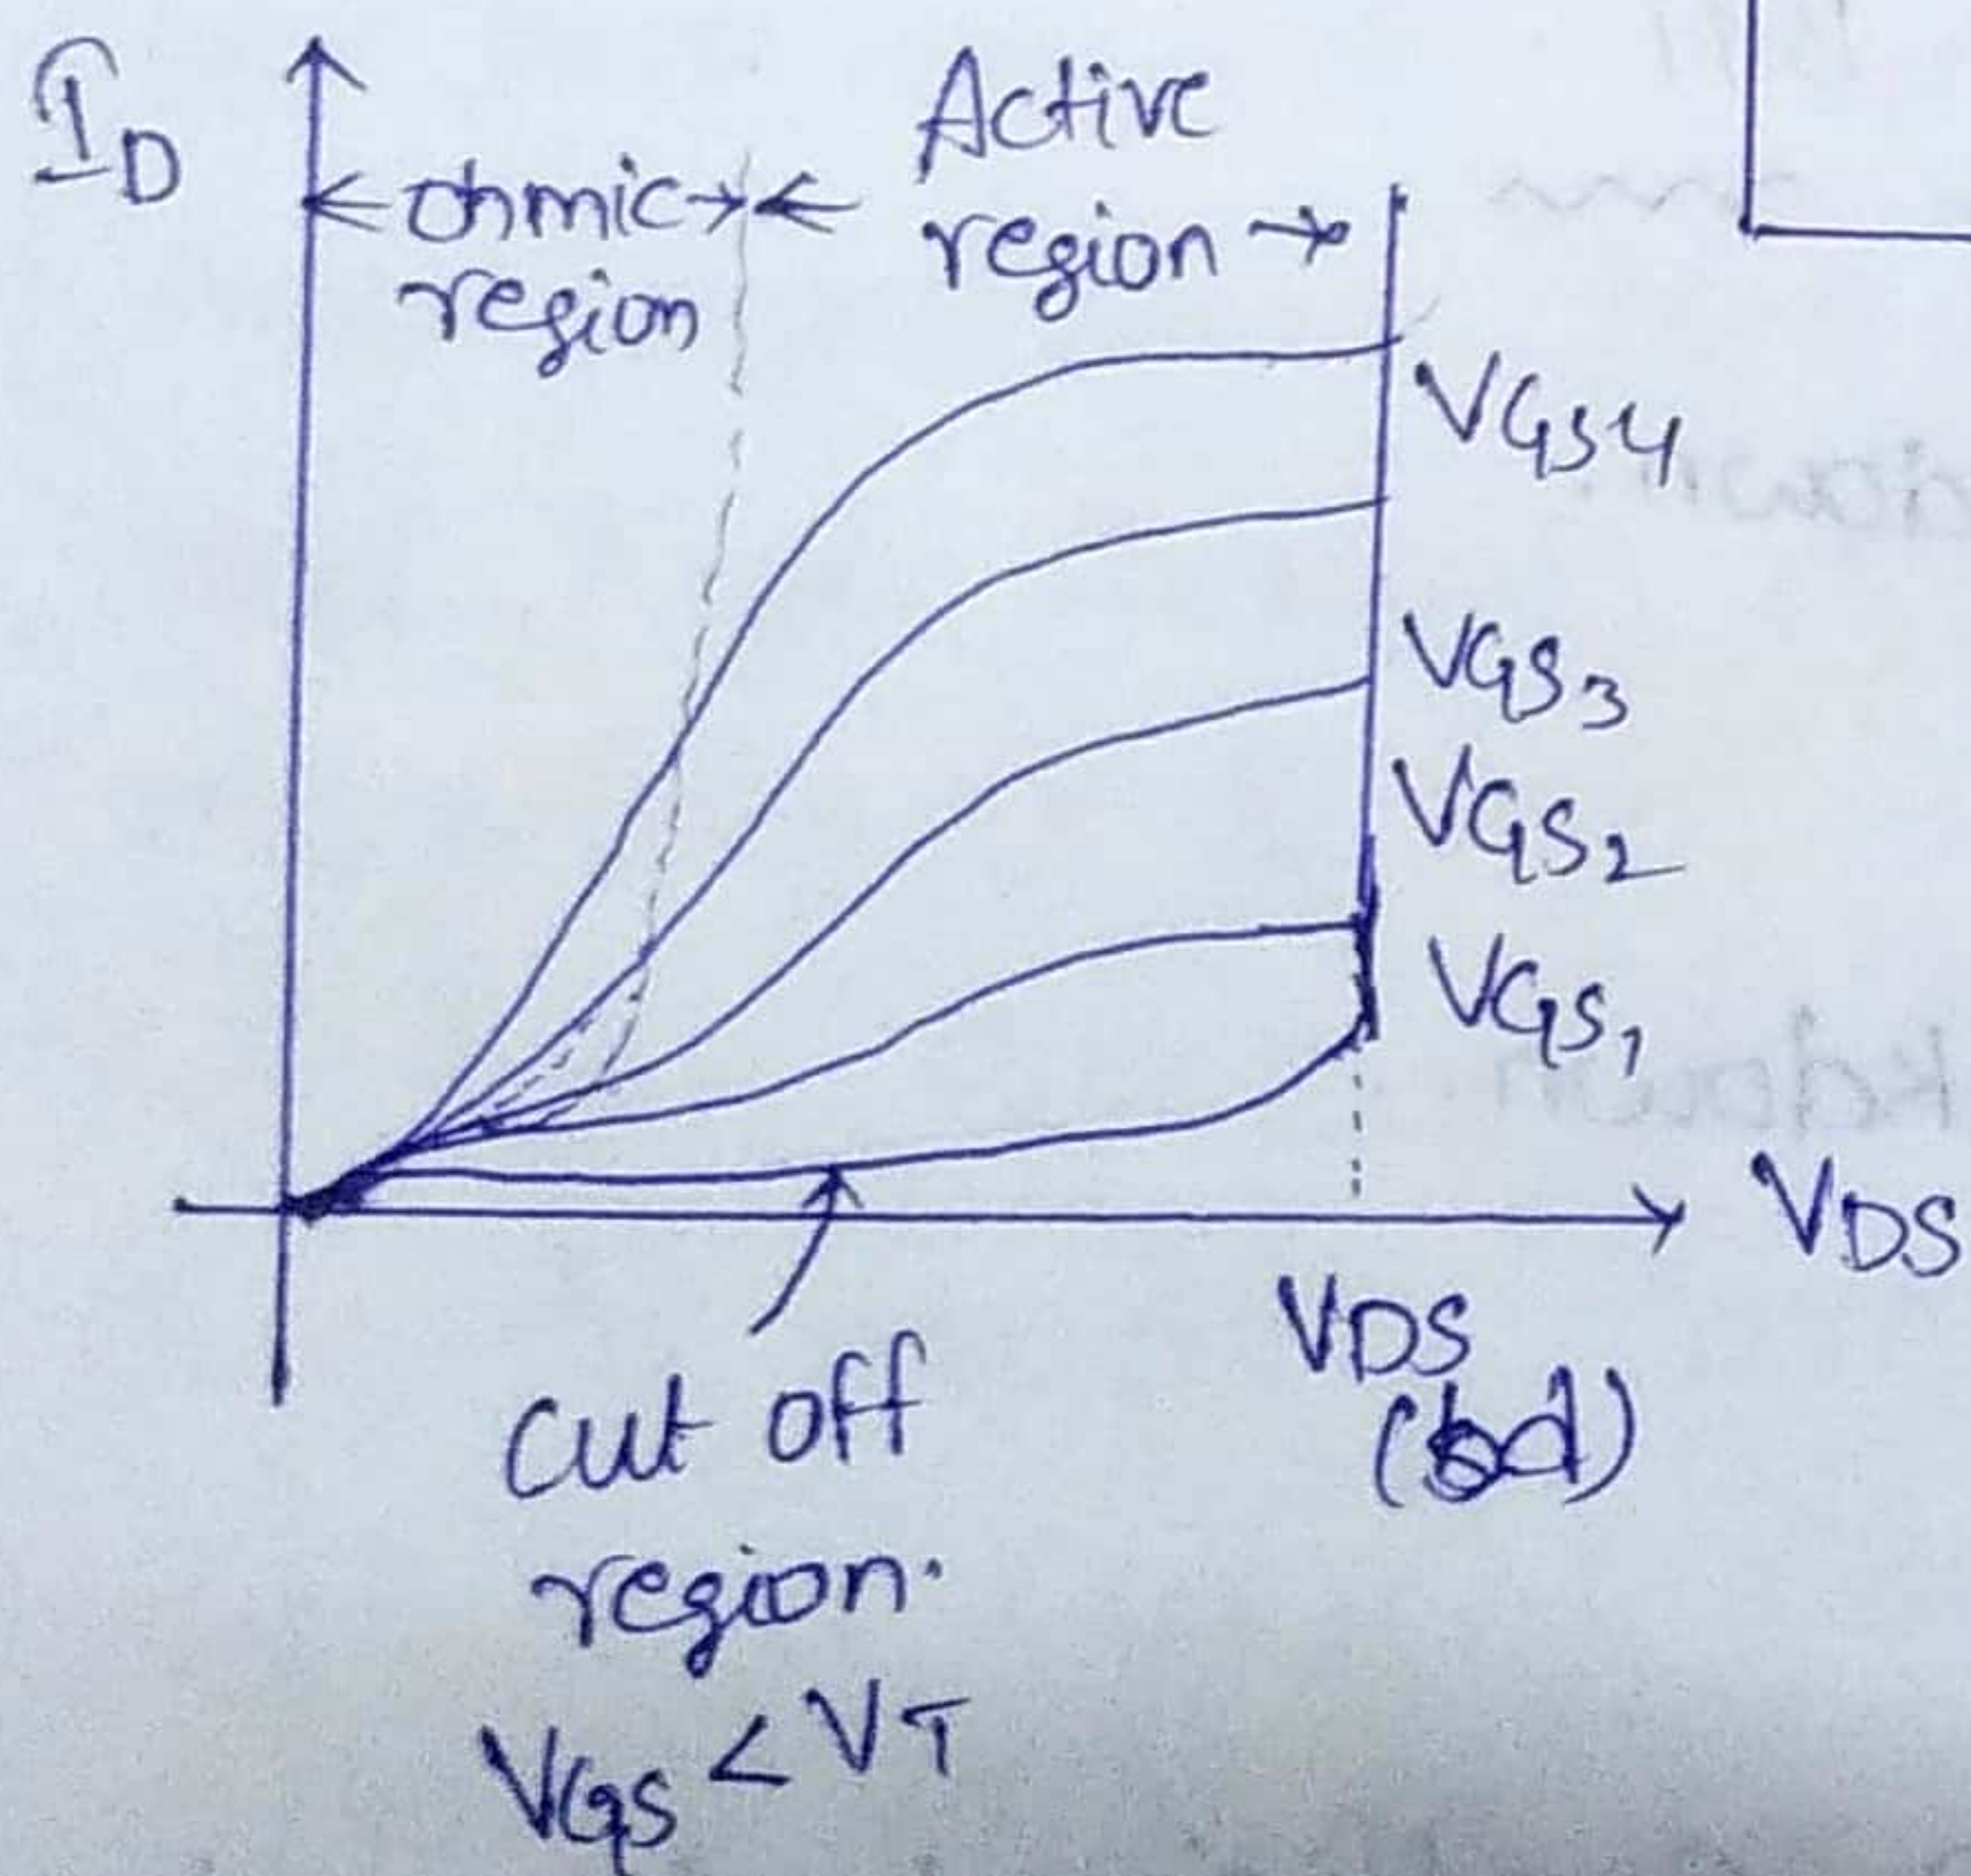 ID
Active
ohmic
region
region
VGS4
VGS3
VGS2
VGS1
VDS
VDS
(bd)
cut off
region.
VGS < VT